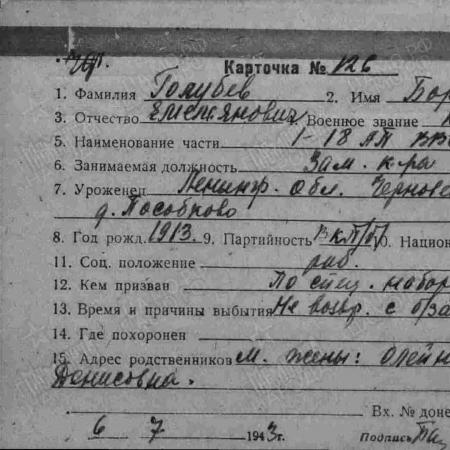 Карточка № 126
1. Фамилия Голубев 2. Имя Бор
3. Отчество Емельянович 4. Военное звание
5. Наименование части 1-18 АП ВВС
6. Занимаемая должность Зам. к-ра
7. Уроженец Ленингр. обл. Черновс
д.
8. Год рожд. 1913. 9. Партийность ВКП(б) 10. Национ
11. Соц. положение раб.
12. Кем призван По спец. набор
13. Время и причины выбытия Не возвр. с б/за
14. Где похоронен
15. Адрес родственников м. жены: Олейн
Денисовна.
Вх. № доне
6 7 1943г. Подпись